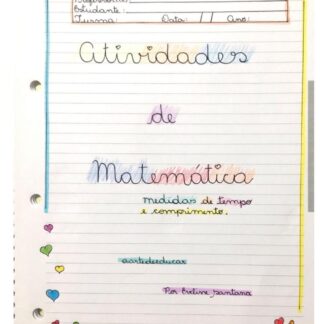 Estudante:
Turma: Data: / / Ano:
Atividades
de
Matemática
medidas de tempo
e comprimento.
aartedeeducar
Por Eveline Santana